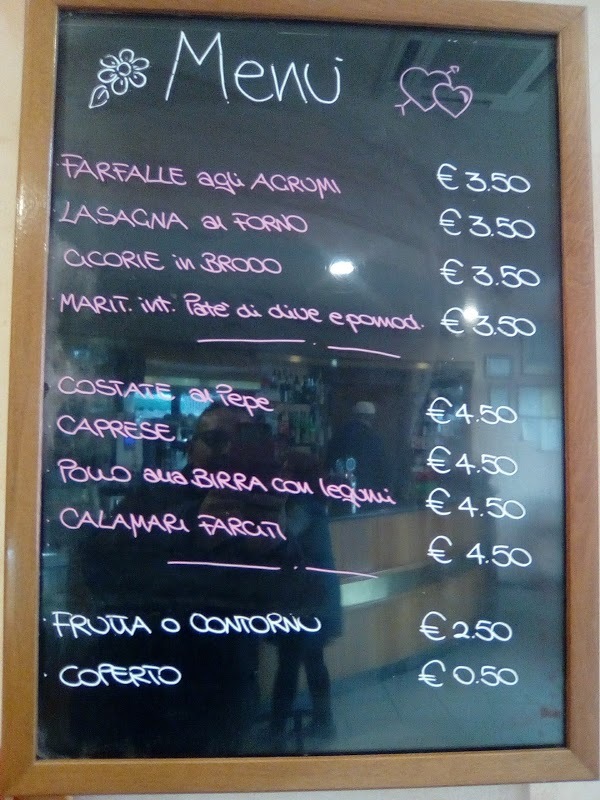 Menù
FARFALLE agli AGRUMI € 3.50
LASAGNA al FORNO € 3.50
CICORIE in BRODO € 3.50
MARIT. int. Patè di olive e pomod. € 3.50
COSTATE al Pepe € 4.50
CAPRESE € 4.50
POLLO alla BIRRA con legumi € 4.50
CALAMARI FARCITI € 4.50
FRUTTA o CONTORNI € 2.50
COPERTO € 0.50